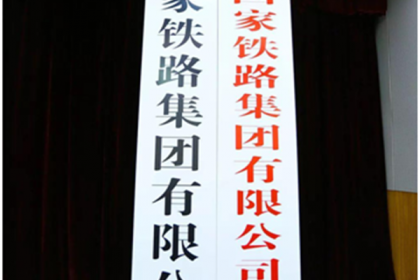 国家铁路集团有限公司
家铁路集团有限公